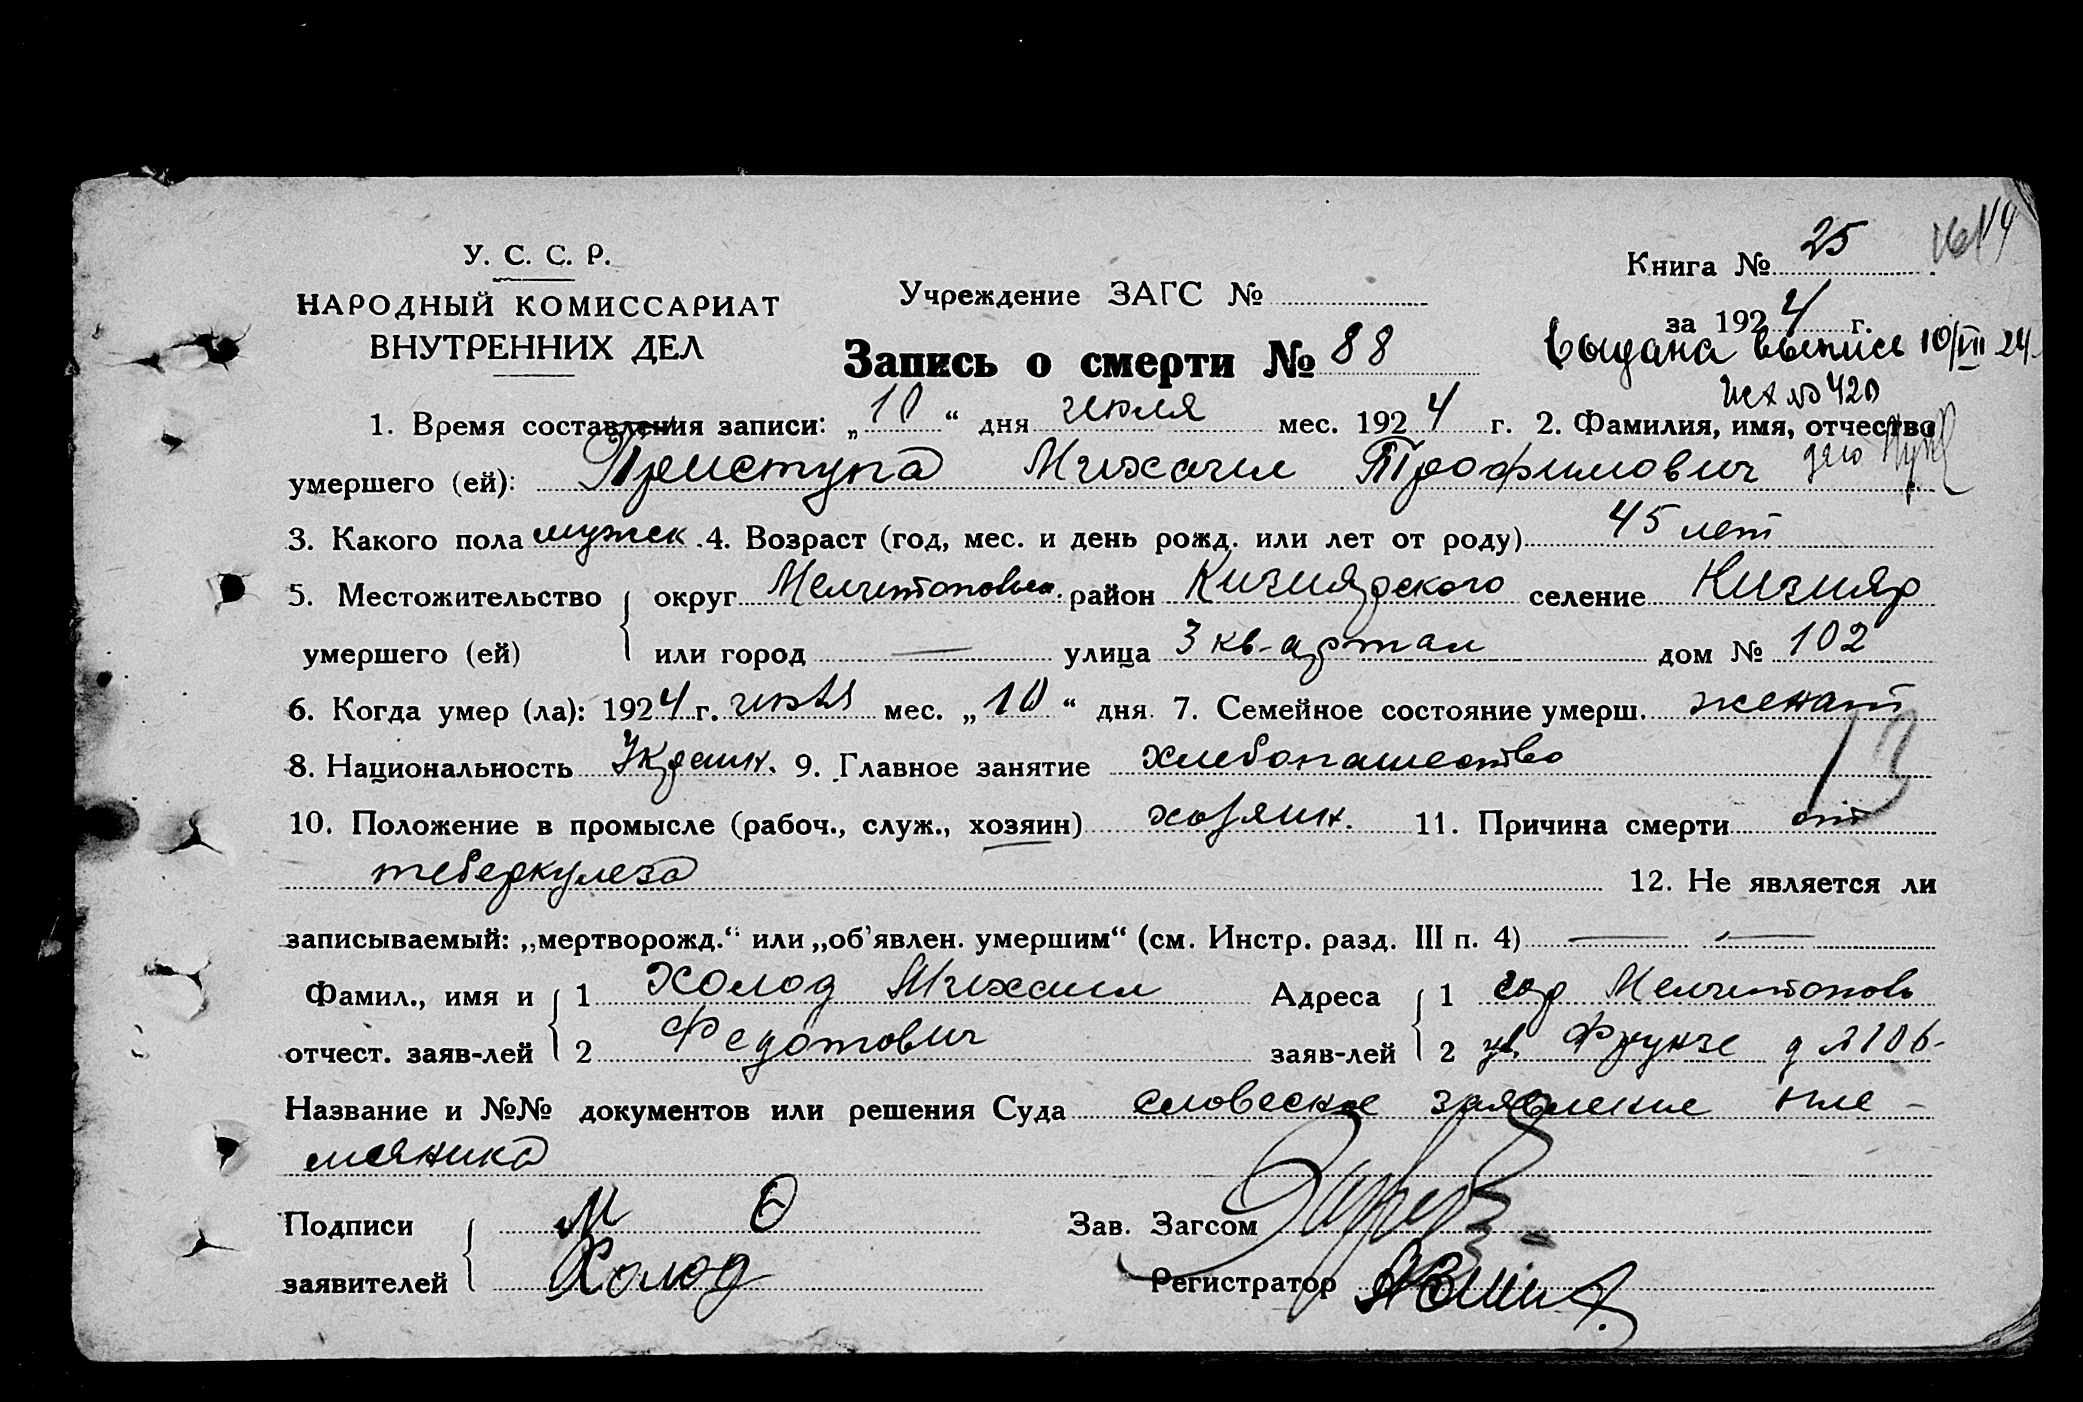 У. С. С. Р.
НАРОДНЫЙ КОМИССАРИАТ
ВНУТРЕННИХ ДЕЛ
Учреждение ЗАГС №
Книга № 25
за 1924 г.
Запись о смерти № 88
выдана выпись 10/VII 24
исх № 420
1. Время составления записи: „10“ дня июля мес. 1924 г. 2. Фамилия, имя, отчество
умершего (ей): Приступа Михаил Трофимович
3. Какого пола мужск. 4. Возраст (год, мес. и день рожд. или лет от роду) 45 лет
5. Местожительство округ Мелитопольс. район Кизиярского селение Кизияр
умершего (ей) или город — улица 3 кв-артал дом № 102
6. Когда умер (ла): 1924 г. июля мес. „10“ дня 7. Семейное состояние умерш. женат
8. Национальность Украин. 9. Главное занятие хлебопашество
13
10. Положение в промысле (рабоч., служ., хозяин) хозяин. 11. Причина смерти от
теберкулеза 12. Не является ли
записываемый: „мертворожд.“ или „об'явлен. умершим“ (см. Инстр. разд. III п. 4) — —
Фамил., имя и 1 Холод Михаил Адреса 1 гор Мелитополь
отчест. заяв-лей 2 Федотович заяв-лей 2 ул. Фрунзе д № 106
Название и №№ документов или решения Суда словеское заявление пле-
мяника
Подписи М Ѳ Зав. Загсом
заявителей Холод Регистратор